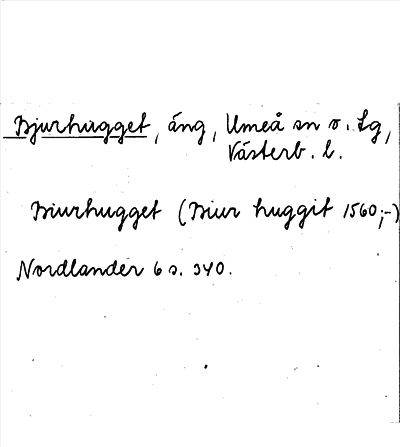 Bjurhugget, äng, Umeå sn o. Lg,
Västerb. l.
Biurhugget (Biur huggit 1560;-)
Nordlander 6 s. 340.